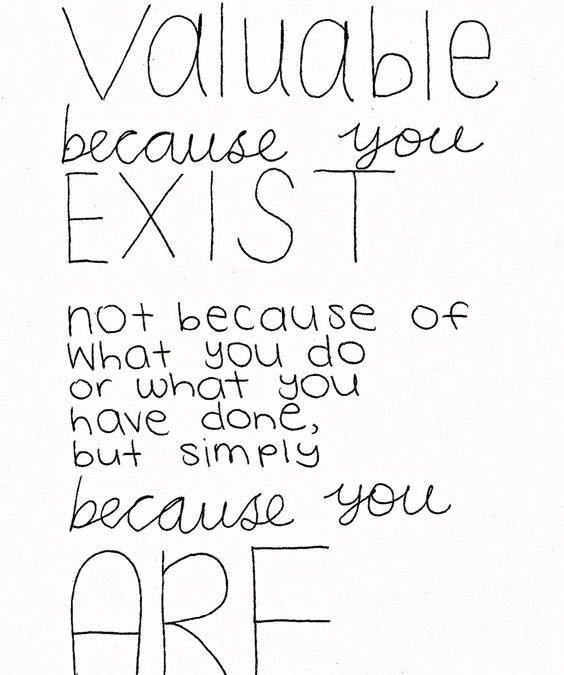 Valuable
because you
EXIST
not because of
What you do
or what you
have done,
but simply
because you
ARE